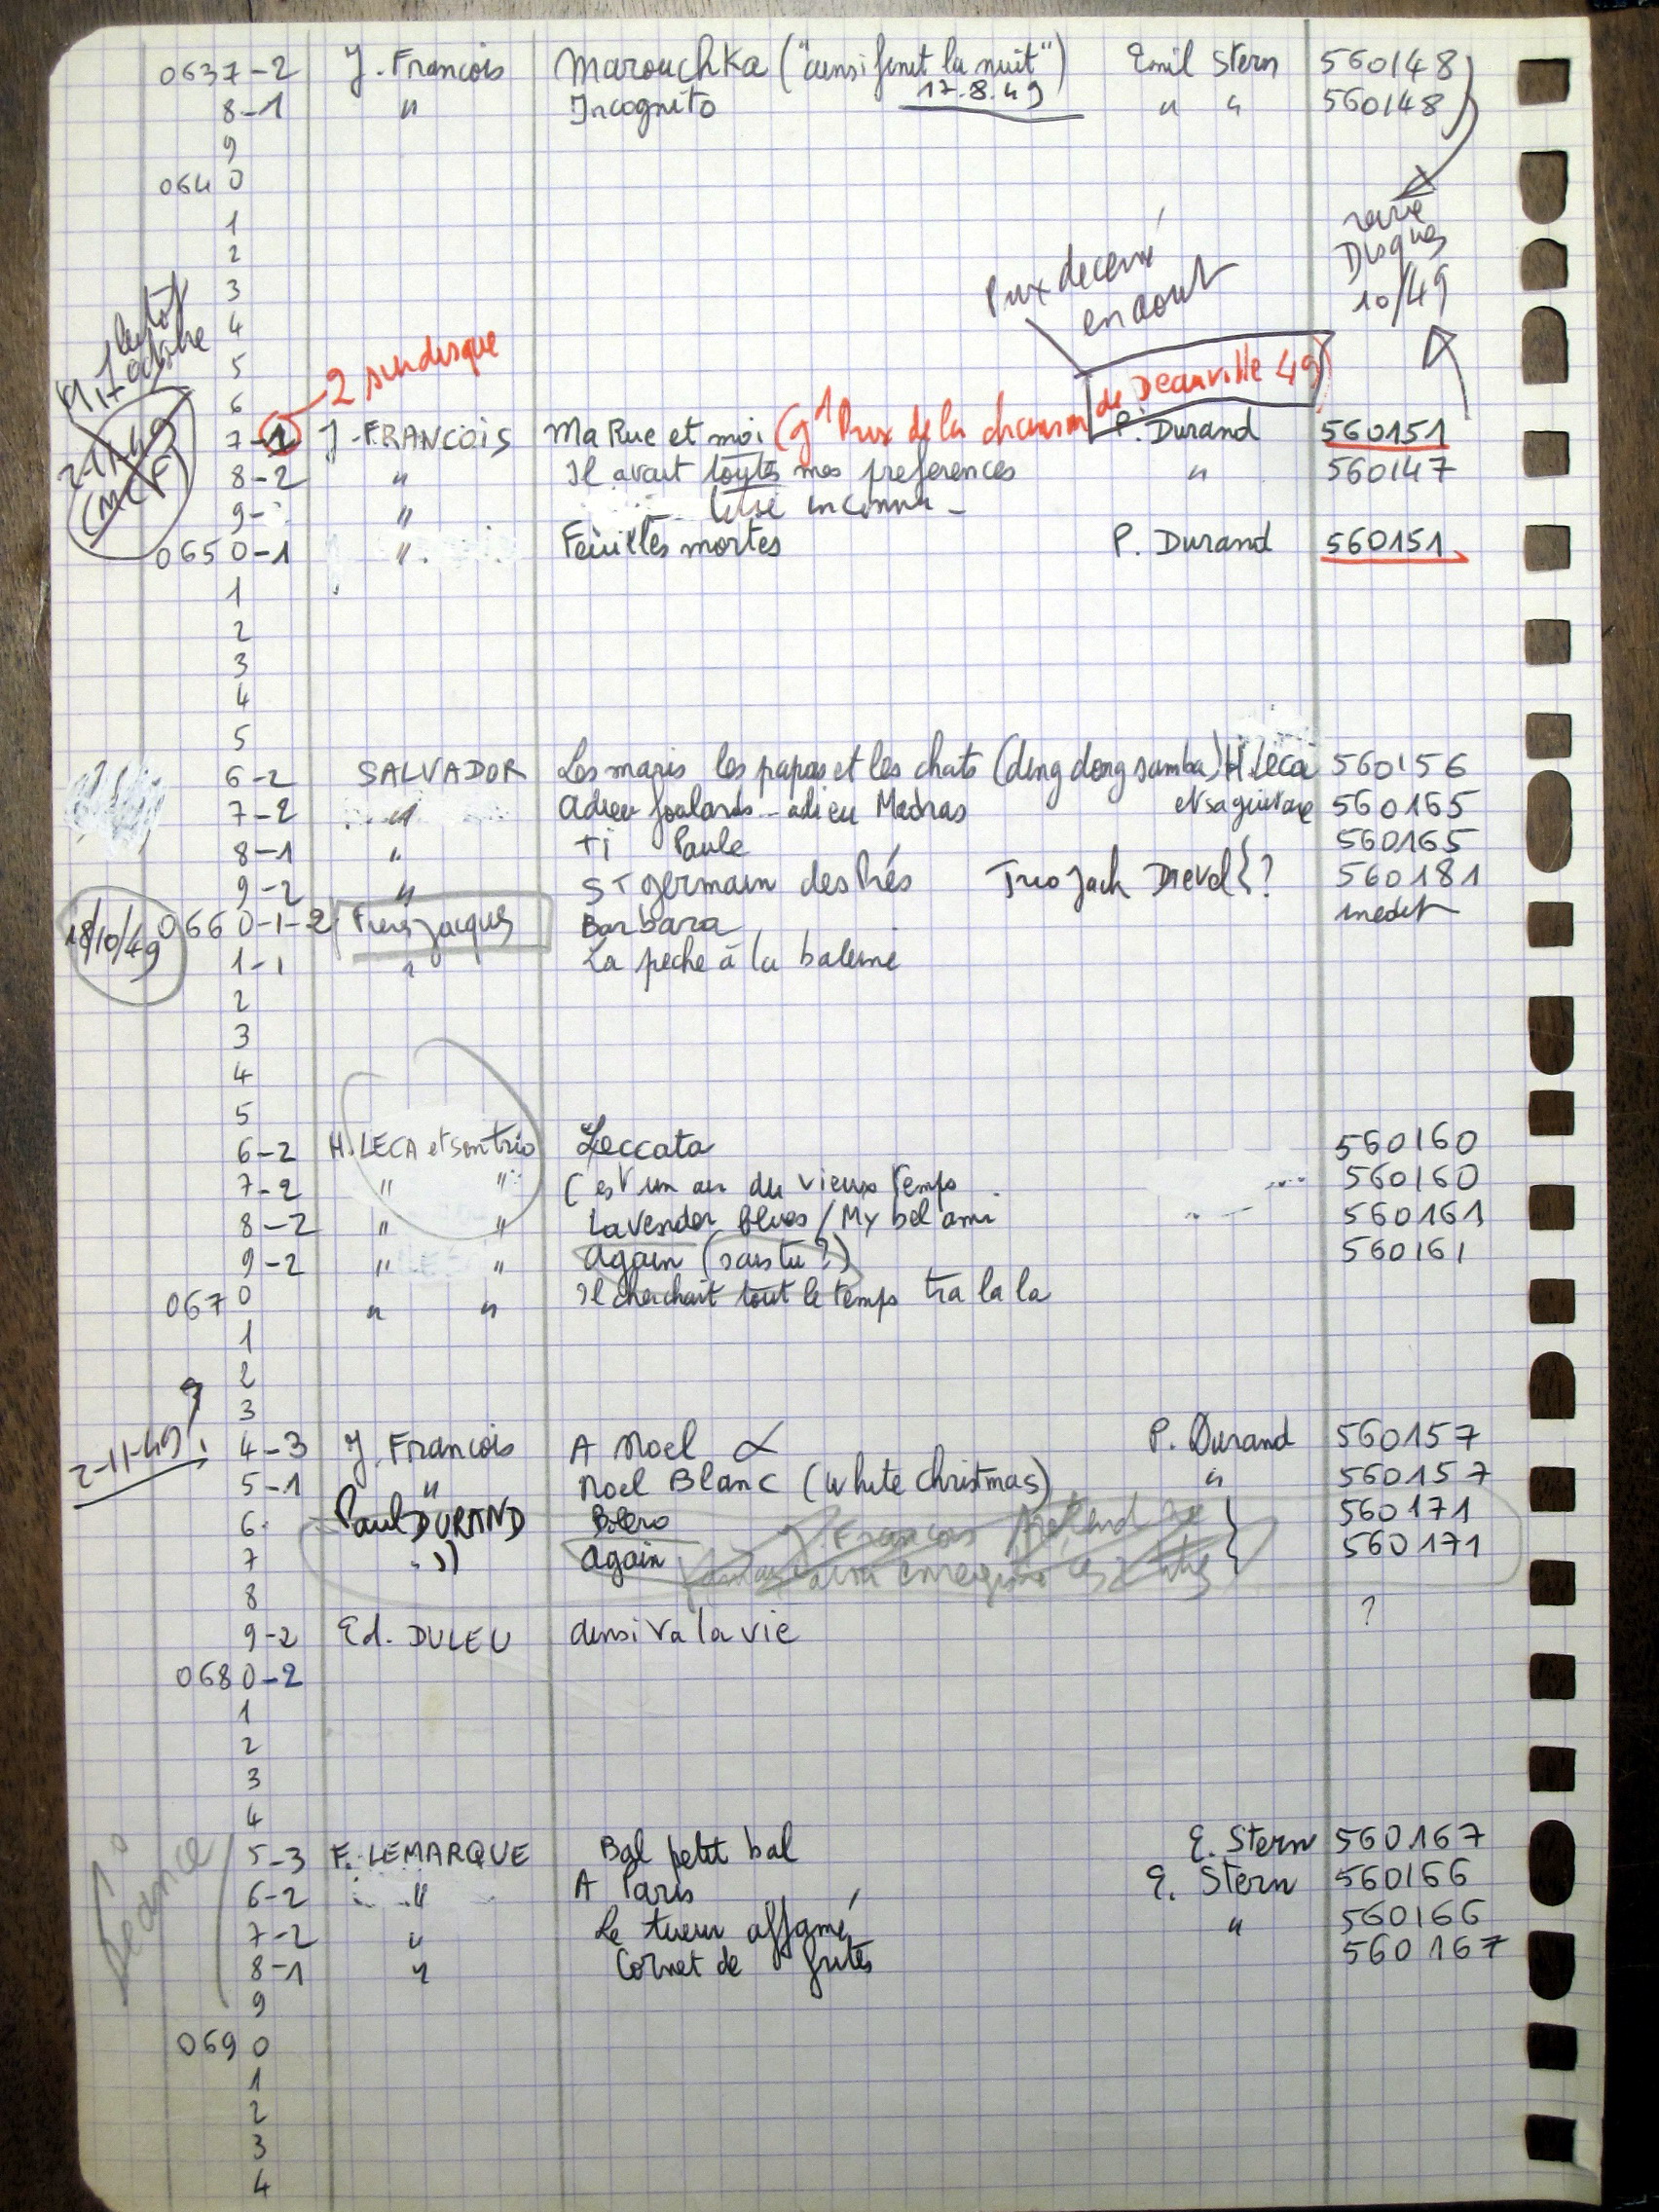 0637-2 J. François Marouchka ("ainsi finit la nuit") Emil Stern 560148
17.8.49
8-1 " Incognito " " 560148
9
0640
1
2
revue
Disques
10/49
3
Prix decerné
en aout
4
5
2 sur disque
6
de Deauville 49)
7-1 J-FRANCOIS Ma Rue et moi (gd Prix de la chanson P. Durand 560151
8-2 " Il avait toutes mes preferences " 560147
9- " titre inconnu -
0650-1 " Feuilles mortes P. Durand 560151
2-11-49
1
2
3
4
5
6-2 SALVADOR Les maris les papas et les chats (ding dong samba) H. Leca 560156
7-2 " Adieu foulards - adieu Madras et sa guitare 560165
8-1 " Ti Paule 560165
9-2 " St germain des Prés Trio Jack Dieval } ? 560181
18/10/49
0660-1-2 Frères Jacques Barbara inedit
1-1 " La peche à la baleine
2
3
4
5
6-2 H. LECA et son trio Leccata 560160
7-2 " " C'est un air du vieux temps 560160
8-2 " " Lavender blues / My bel ami 560161
9-2 " " Again (sais tu ?) 560161
0670 " " Il cherchait tout le temps tra la la
1
2
3
2-11-49
4-3 J. François A Noel P. Durand 560157
5-1 " Noel Blanc (white christmas) " 560157
6 Paul DURAND Bolero J. Francois Pretend ne 560171
7 " Again jamais avoir enregistré ces 2 titres 560171
8
9-2 Ed. DULEU ainsi va la vie ?
0680-2
1
2
3
4
1°
Seance
5-3 F. LEMARQUE Bal petit bal E. Stern 560167
6-2 " A Paris E. Stern 560166
7-2 " Le tueur affamé " 560166
8-1 " Cornet de frites 560167
9
0690
1
2
3
4